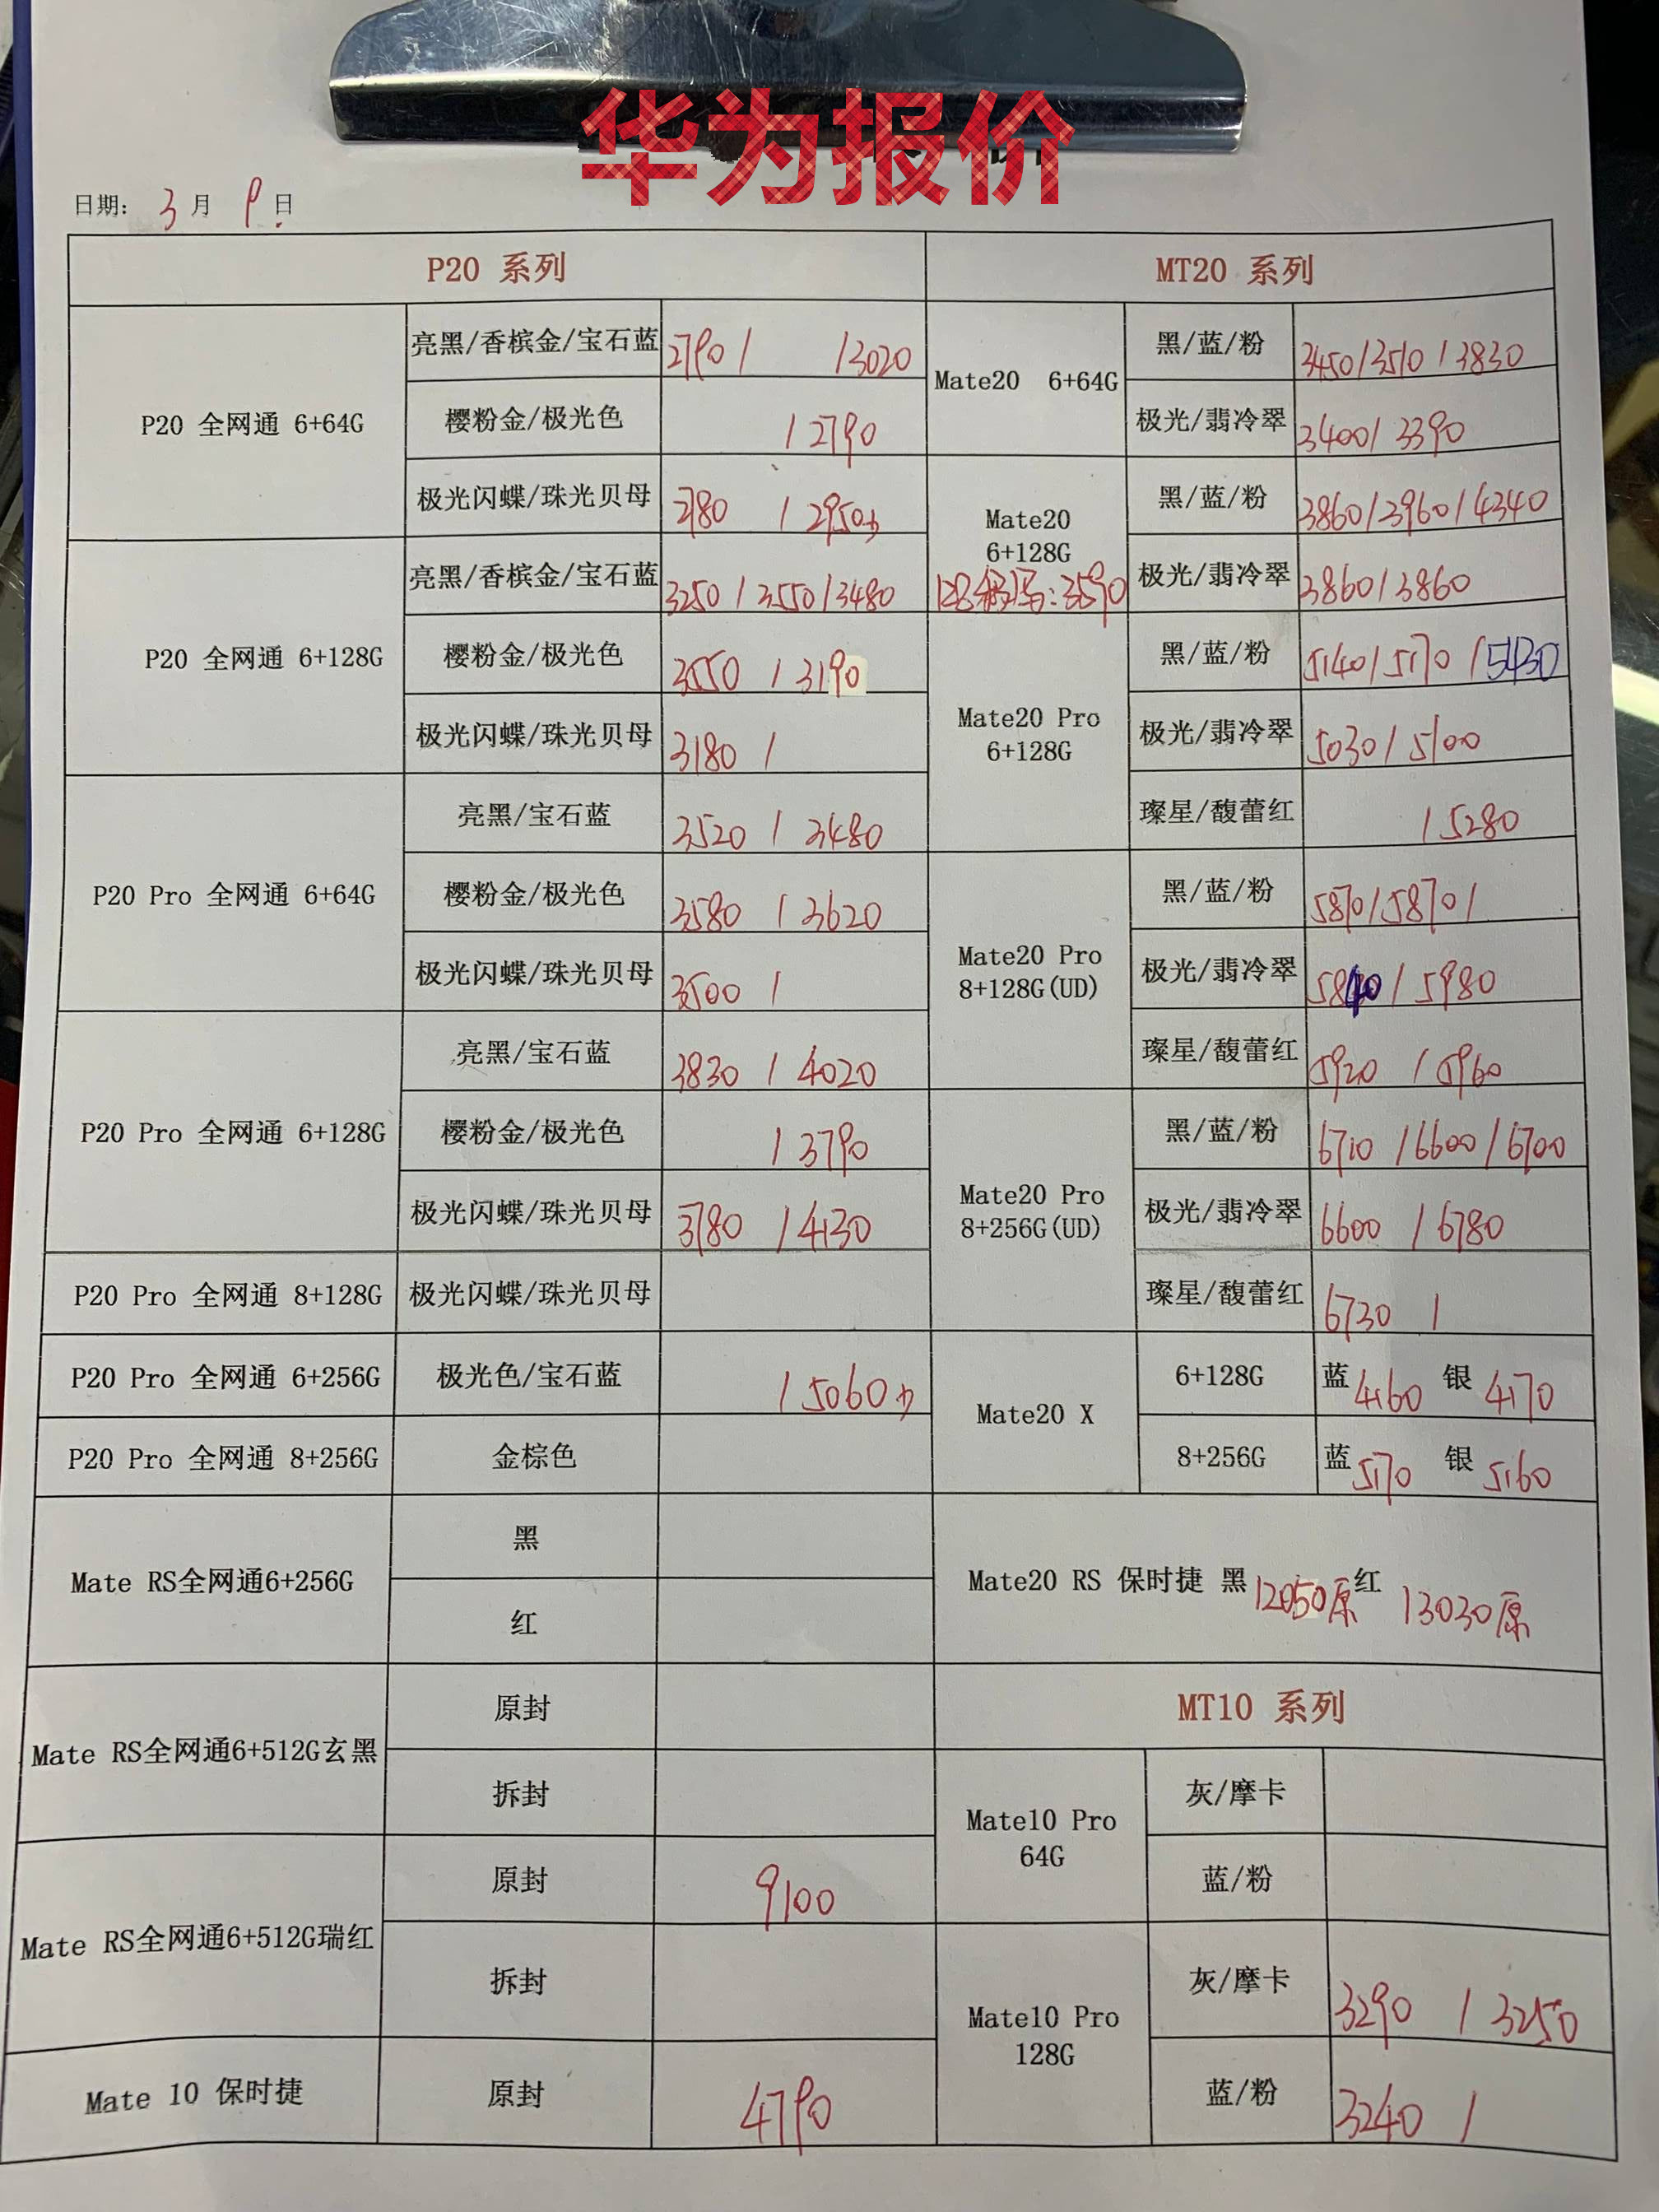 华为报价
日期: 3 月 9 日
P20 系列
P20 全网通 6+64G
亮黑/香槟金/宝石蓝 2790 / /3020
樱粉金/极光色 / 2790
极光闪蝶/珠光贝母 2780 / 2950
P20 全网通 6+128G
亮黑/香槟金/宝石蓝 3250 / 3550 / 3480
樱粉金/极光色 3550 / 3190
极光闪蝶/珠光贝母 3180 /
P20 Pro 全网通 6+64G
亮黑/宝石蓝 3520 / 3480
樱粉金/极光色 3580 / 3620
极光闪蝶/珠光贝母 3500 /
P20 Pro 全网通 6+128G
亮黑/宝石蓝 3830 / 4020
樱粉金/极光色 / 3790
极光闪蝶/珠光贝母 3780 / 4130
P20 Pro 全网通 8+128G 极光闪蝶/珠光贝母
P20 Pro 全网通 6+256G 极光色/宝石蓝 / 5060
P20 Pro 全网通 8+256G 金棕色
Mate RS全网通6+256G
黑
红
Mate RS全网通6+512G玄黑
原封
拆封
Mate RS全网通6+512G瑞红
原封 9100
拆封
Mate 10 保时捷 原封 4790
MT20 系列
Mate20 6+64G
黑/蓝/粉 3450 / 3510 / 3830
极光/翡冷翠 3400 / 3390
Mate20
6+128G
128 : 3590
黑/蓝/粉 3860 / 3960 / 4340
极光/翡冷翠 3860 / 3860
Mate20 Pro
6+128G
黑/蓝/粉 5140 / 5170 / 5430
极光/翡冷翠 5030 / 5100
璨星/馥蕾红 / 5280
Mate20 Pro
8+128G(UD)
黑/蓝/粉 5870 / 5870 /
极光/翡冷翠 5840 / 5980
璨星/馥蕾红 5920 / 5960
Mate20 Pro
8+256G(UD)
黑/蓝/粉 6710 / 6600 / 6700
极光/翡冷翠 6600 / 6780
璨星/馥蕾红 6730 /
Mate20 X
6+128G 蓝 4160 银 4170
8+256G 蓝 5170 银 5160
Mate20 RS 保时捷 黑 12050原 红 13030原
MT10 系列
Mate10 Pro
64G
灰/摩卡
蓝/粉
Mate10 Pro
128G
灰/摩卡 3290 / 3250
蓝/粉 3240 /